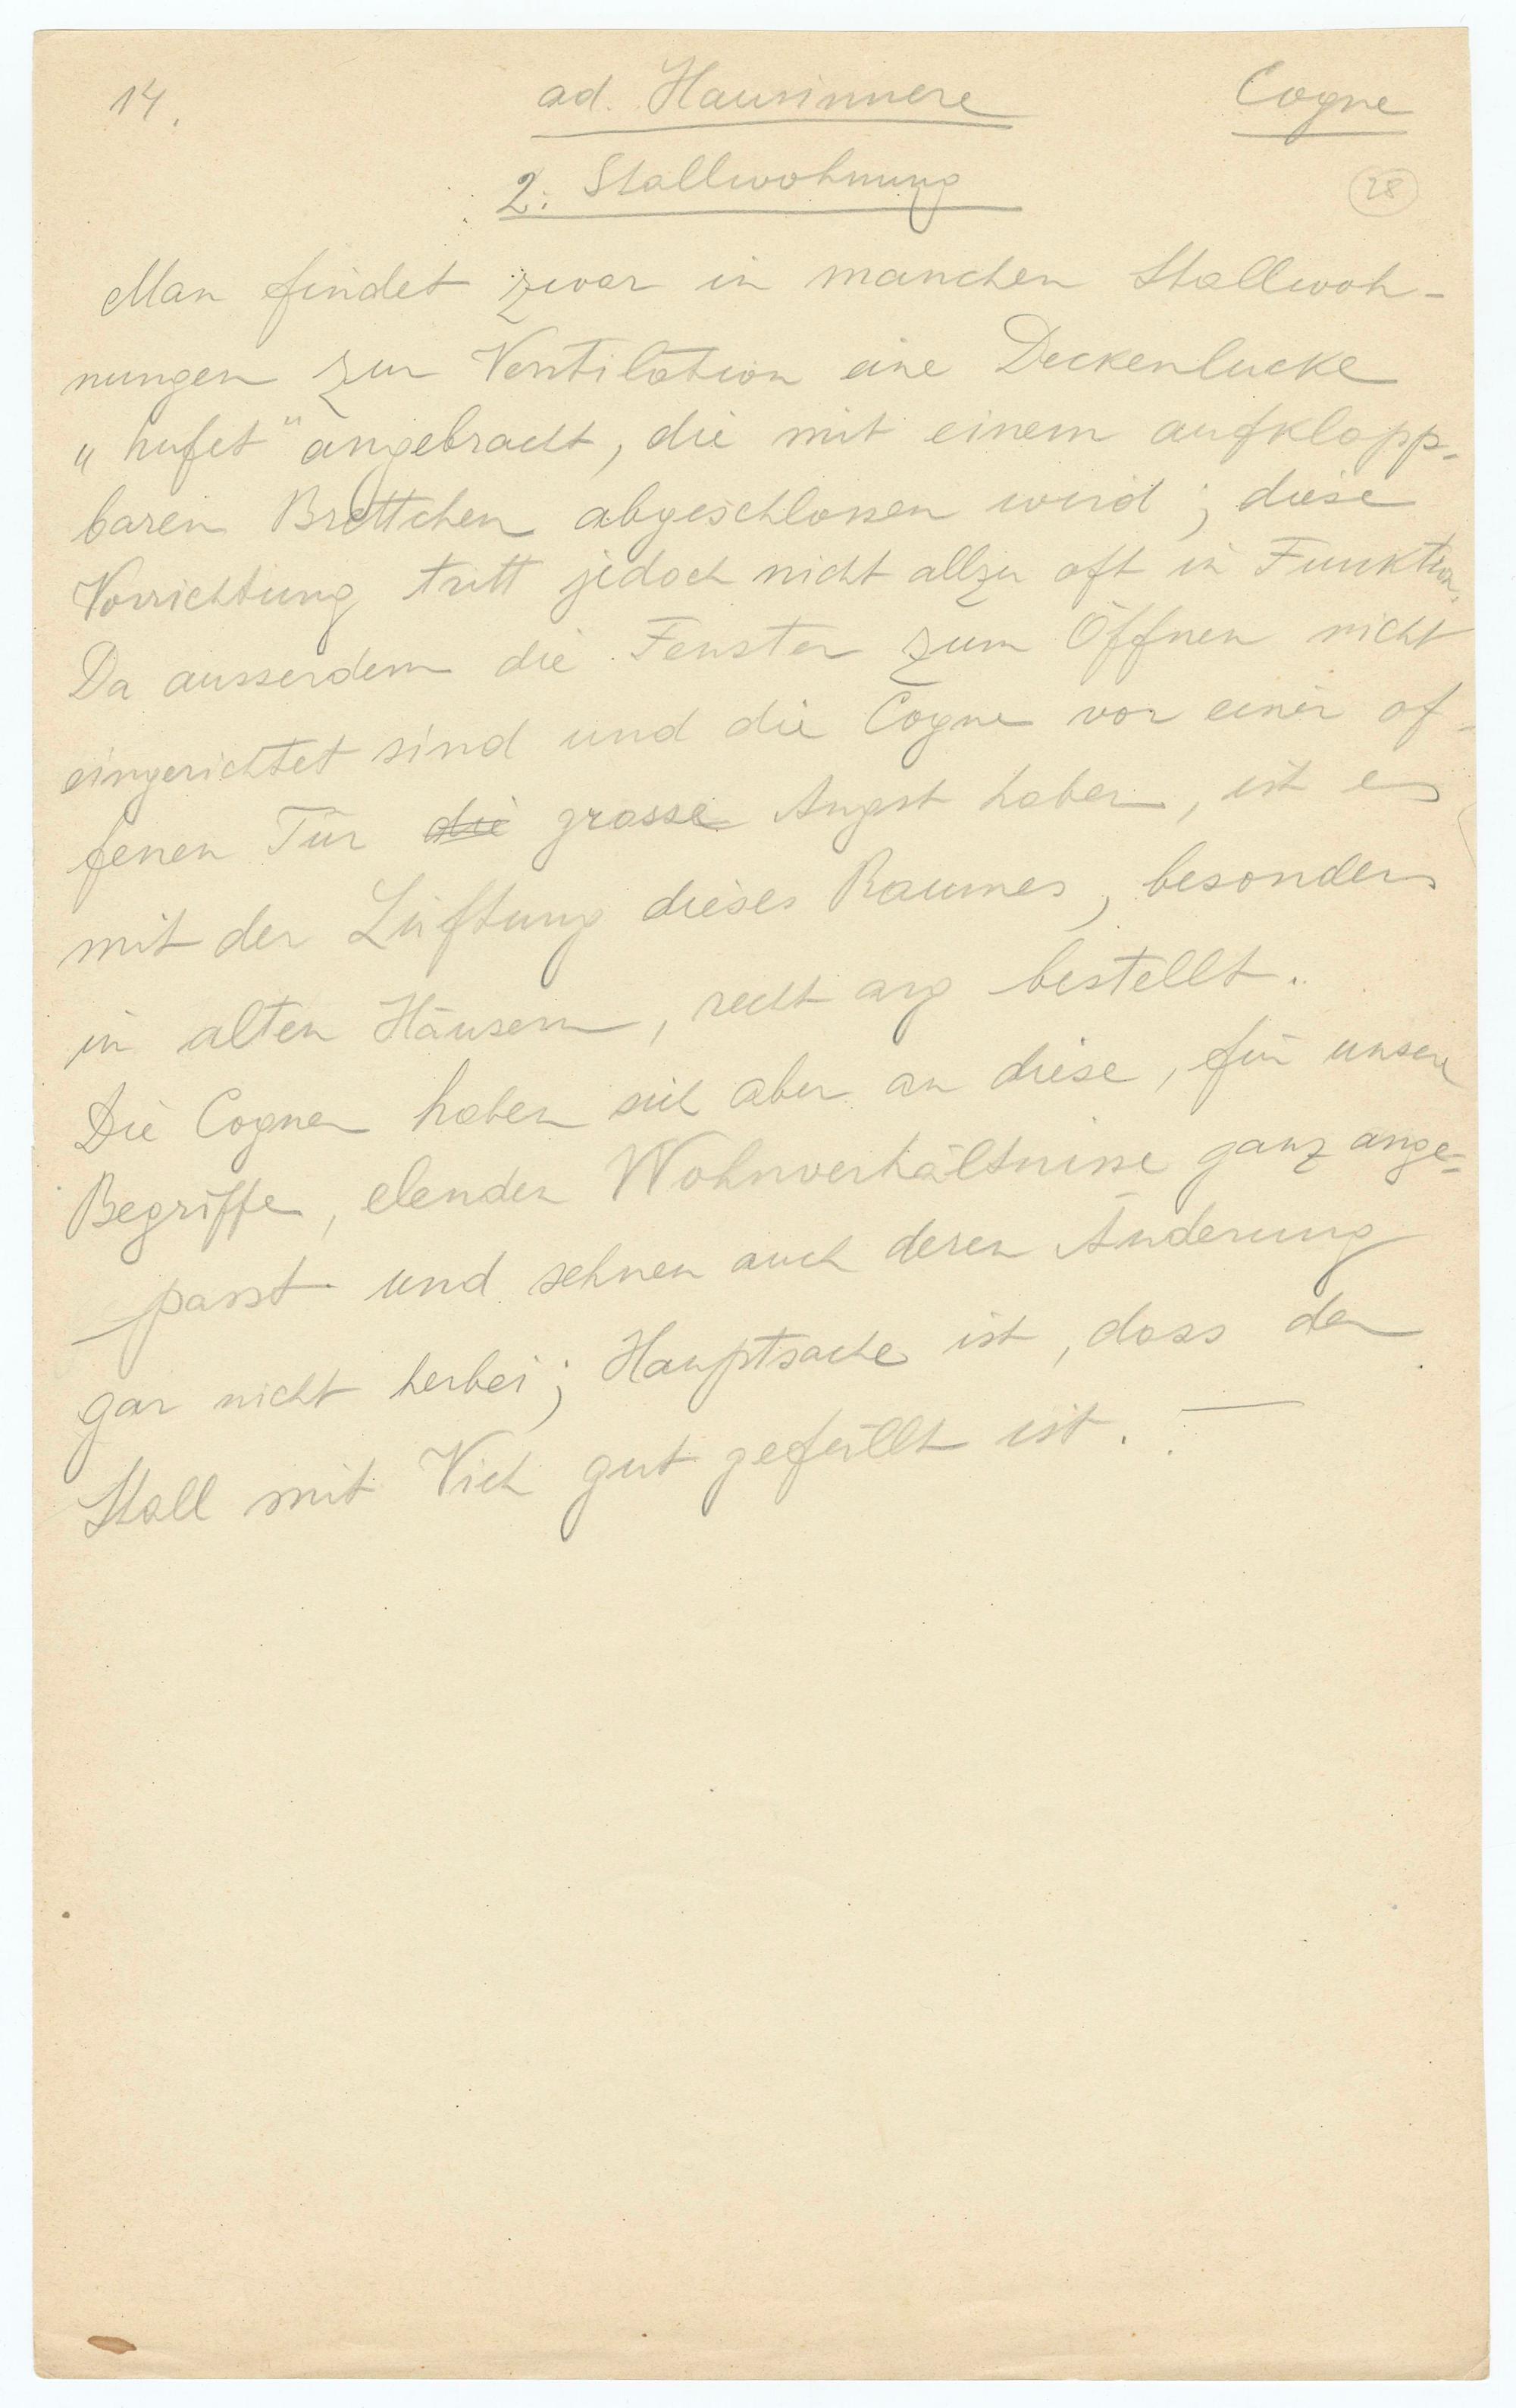 14.
ad. Hausinnere
Cogne
2. Stallwohnung
28
Man findet zwar in manchen Stallwoh-
nungen zur Ventilation eine Deckenlucke
„hufet" angebracht, die mit einem aufklapp-
baren Brettchen abgeschlossen wird; diese
Vorrichtung tritt jedoch nicht allzu oft in Funktion.
Da ausserdem die Fenster zum Öffnen nicht
eingerichtet sind und die Cogne vor einer of-
fenen Tür die grosse Angst haben, ist es
mit der Lüftung dieses Raumes, besonders
in alten Häusern, recht arg bestellt.
Die Cogner haben sich aber an diese, für unsere
Begriffe, elenden Wohnverhältnisse ganz ange-
passt und sehnen auch deren Änderung
gar nicht herbei; Hauptsache ist, dass der
Stall mit Vieh gut gefüllt ist. —